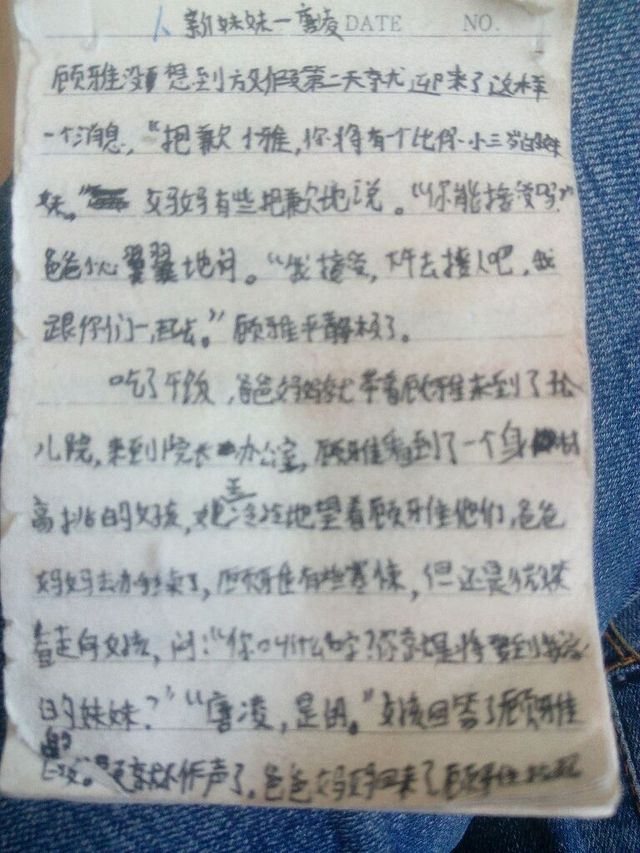 新妹妹一唐凌 DATE NO.
顾雅没想到放假第二天就迎来了这样
一个消息,“把歉小雅,你将有一个比你小三岁的
妹。”妈妈有些把歉地说。“你能接受吗?”
爸爸小心翼翼地问。“我接受,下午去接人吧,我
跟你们一起去。”顾雅平静极了。
吃了午饭,爸爸妈妈就带着顾雅来到了
儿院,来到院长办公室,顾雅看到了一个身材
高挑的女孩,她正冷冷地望着顾雅他们,爸爸
妈妈去办手续了,顾雅有些害怕,但还是微笑
着走向女孩,问:“你叫什么名字?你就是将要到我家
的妹妹?”“唐凌,是的。”女孩回答了顾雅
的话。便不作声了。爸爸妈妈回来了顾雅